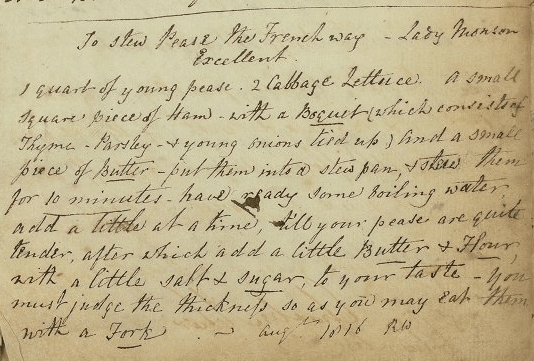 To stew Pease the French way - Lady Monson
Excellent.
1 quart of young pease. 2 Cabbage Lettuce. A small
square piece of Ham - with a Boquit (which consists of
Thyme - Parsley - & young onions tied up) And a small
piece of Butter - put them into a stew pan, & stew them
for 10 minutes - have ready some boiling water
add a little at a time, till your pease are quite
tender, after which add a little Butter & Flour,
with a little salt & sugar, to your taste - you
must judge the thickness so as you may eat them
with a Fork. ~ Augst 1816 RW